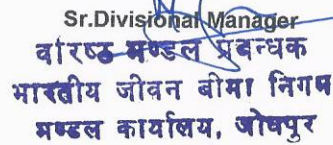 Sr.Divisional Manager
वरिष्ठ मण्डल प्रबन्धक
भारतीय जीवन बीमा निगम
मण्डल कार्यालय, जोधपुर